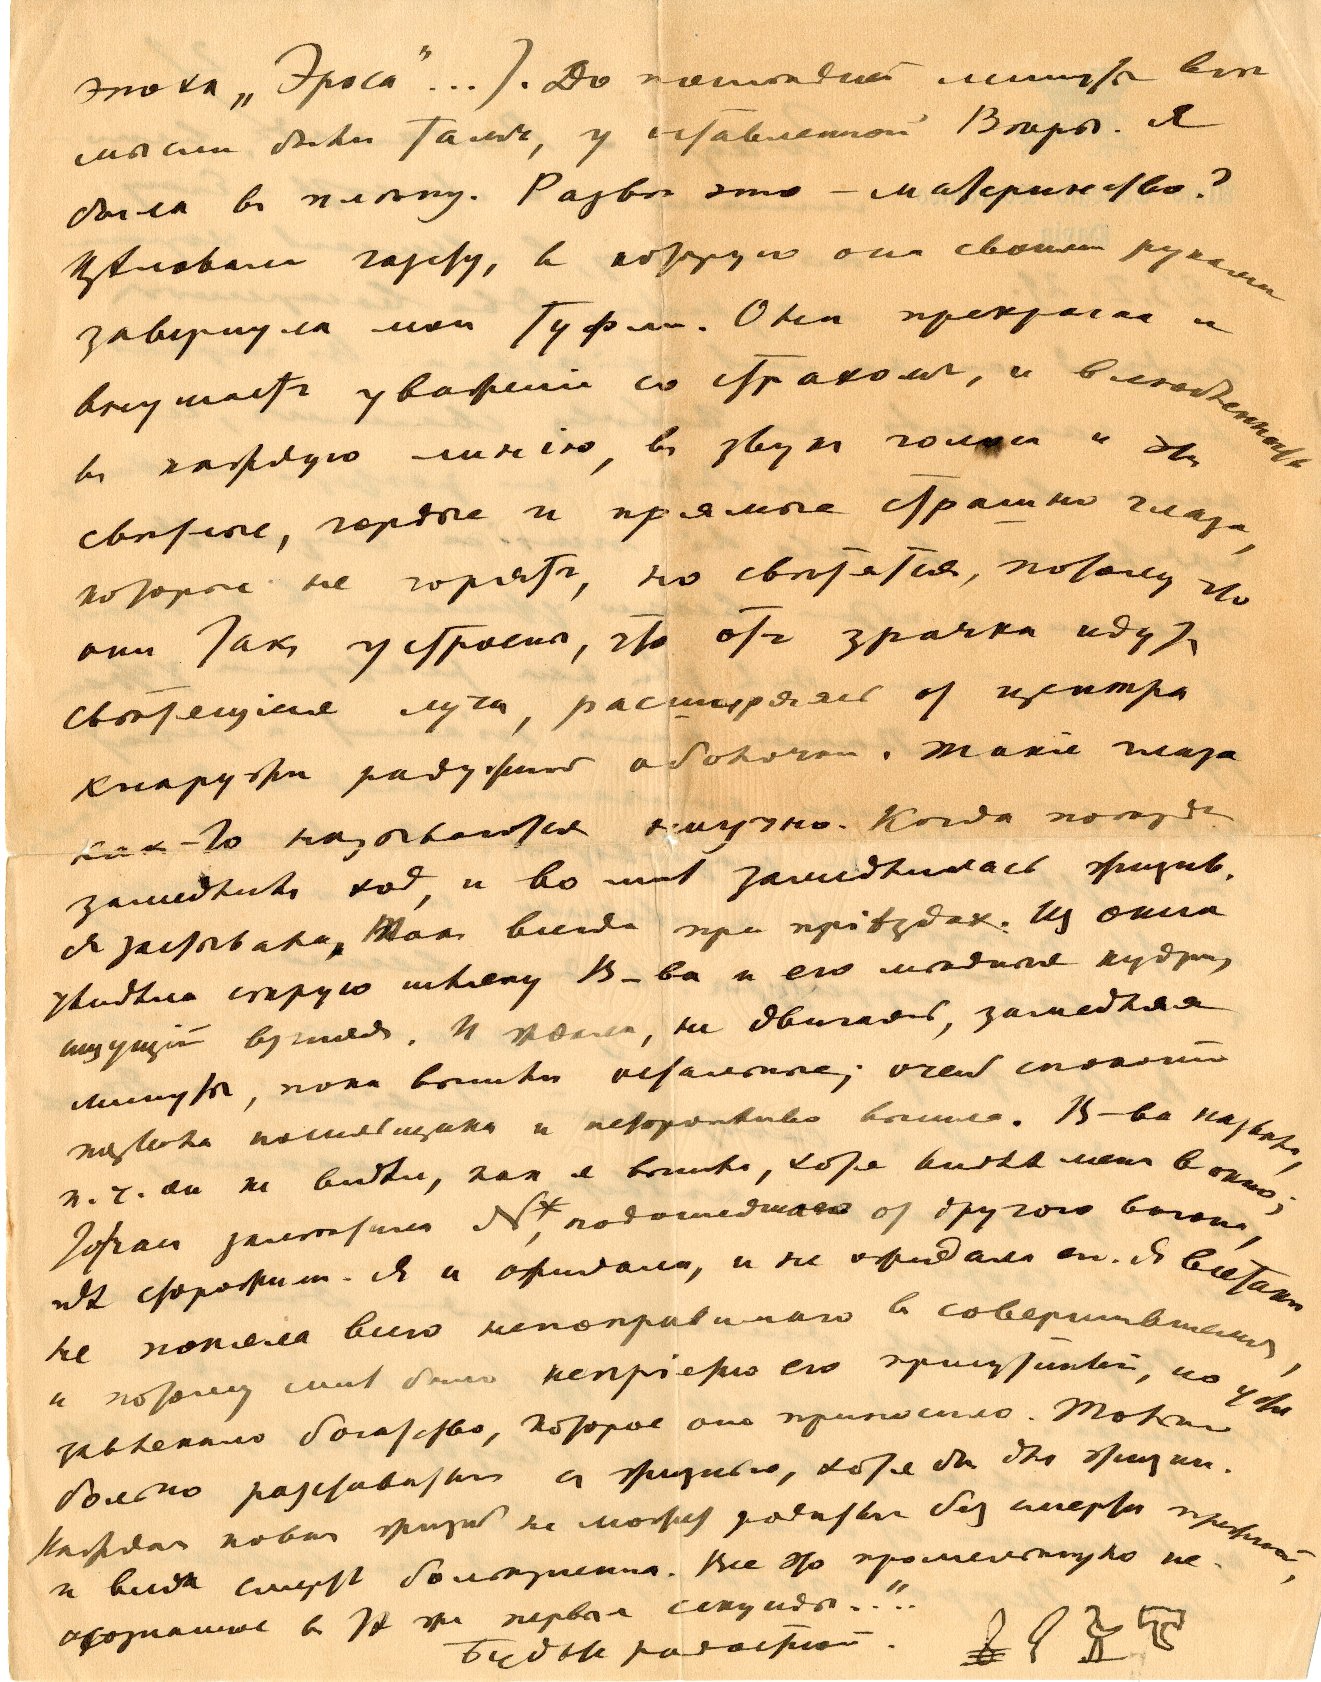 эпоха „Эроса“...). До последней минуты всѣ
мысли были тамъ, у оставленной Вѣры. Я
была въ плѣну. Развѣ это – материнство?
Цѣловала газету, въ которую она своими руками
завернула мои туфли. Она прекрасна и
внушаетъ уваженiе со страхомъ, и влюбленность
въ каждую линiю, въ звукъ голоса и эти
свѣтлые, гордые и прямые страшно глаза,
которые не горятъ, но свѣтятся, потому что
они такъ устроены, что отъ зрачка идутъ
свѣтящiеся лучи, расширяясь от центра
кнаружи радужной оболочки. Такiе глаза
как-то называются научно. Когда поездъ
замедлилъ ход, и во мнѣ замедлилась жизнь.
Я застывала, какъ всегда при прiѣздах. Из окна
увидѣла старую шляпу В-ва и его медные кудри,
ищущiй взгляд. И ждала, не двигаясь, замедляя
минуты, пока вышли остальные; очень спокойно
позвала носильщика и неторопливо вышла. В-ва позвала,
п.ч. он не видѣл, как я вышла, хотя видѣл меня в окно;
тотчас замѣтила N*, подошедшаго от другого вагона,
гдѣ сторожил. Я и ожидала, и не ожидала его. Я всетаки
не поняла всего непоправимаго в совершившемся,
и потому мнѣ было непрiятно его присутствiе, но уже
завлекало богатство, которое оно приносило. Только
больно разставаться с жизнью, хотя бы для жизни.
Каждая новая жизнь не может родиться без смерти прежней,
и видъ смерти болѣзненна. Все это промелькнуло не-
осознанное в тѣ же первыя секунды..“..
Будьте радостной.